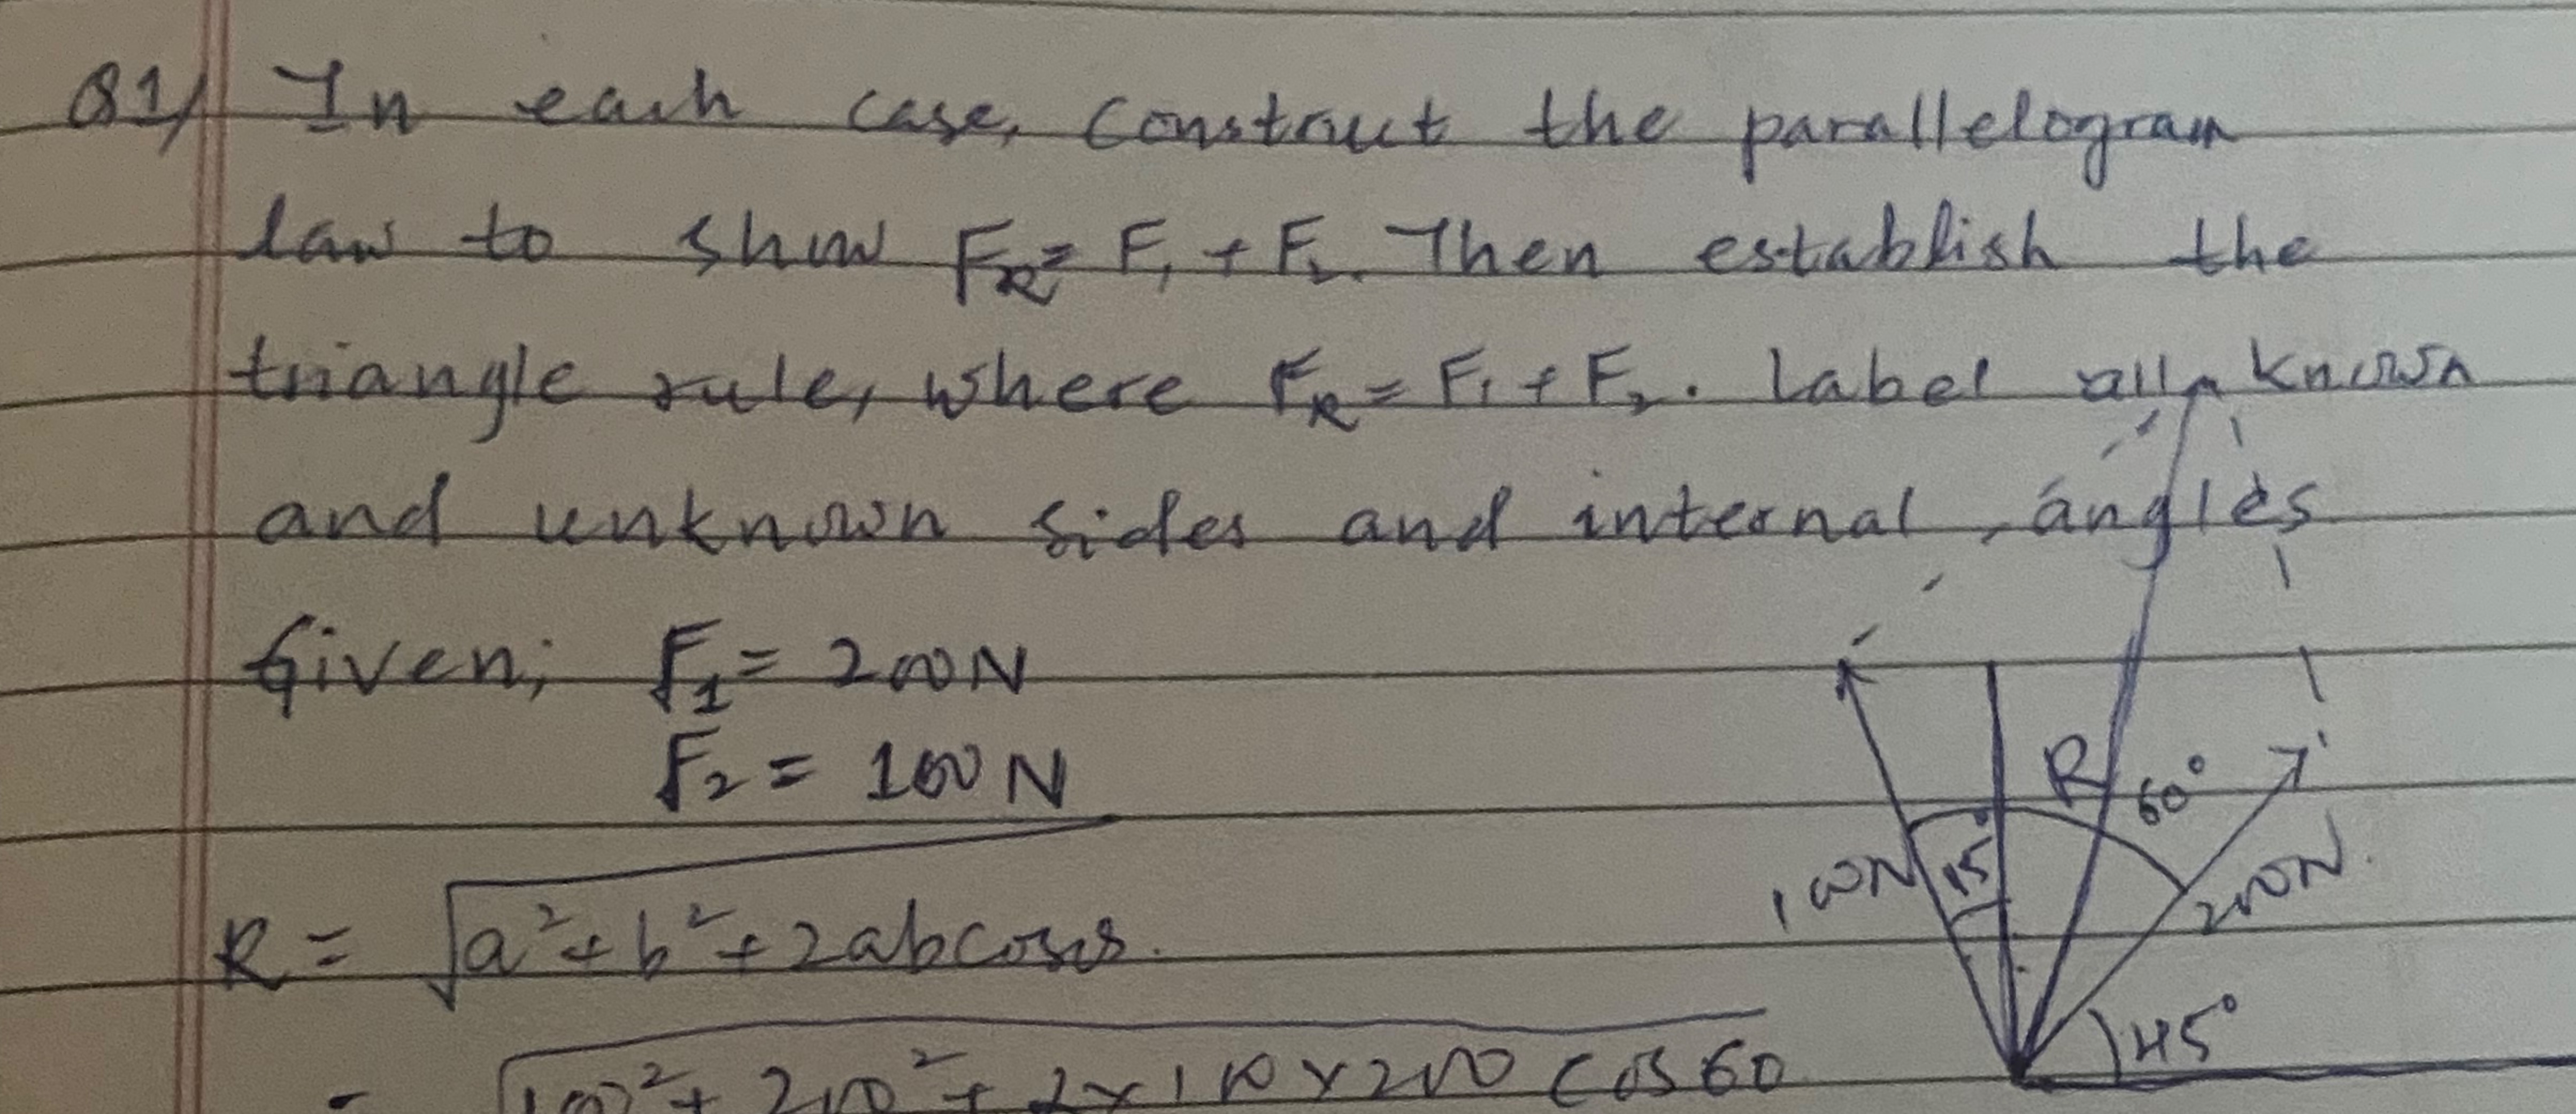 Q1) In each case, construct the parallelogram
law to show F_R = F₁ + F₂. Then establish the
triangle rule, where F_R = F₁ + F₂. Label all known
and unknown sides and internal angles
Given; F₁ = 200N
F₂ = 100N
R = √a² + b² + 2abcos
= √100² + 200² + 2 × 100 × 200 cos 60
R
60°
100N
15
200N.
45°